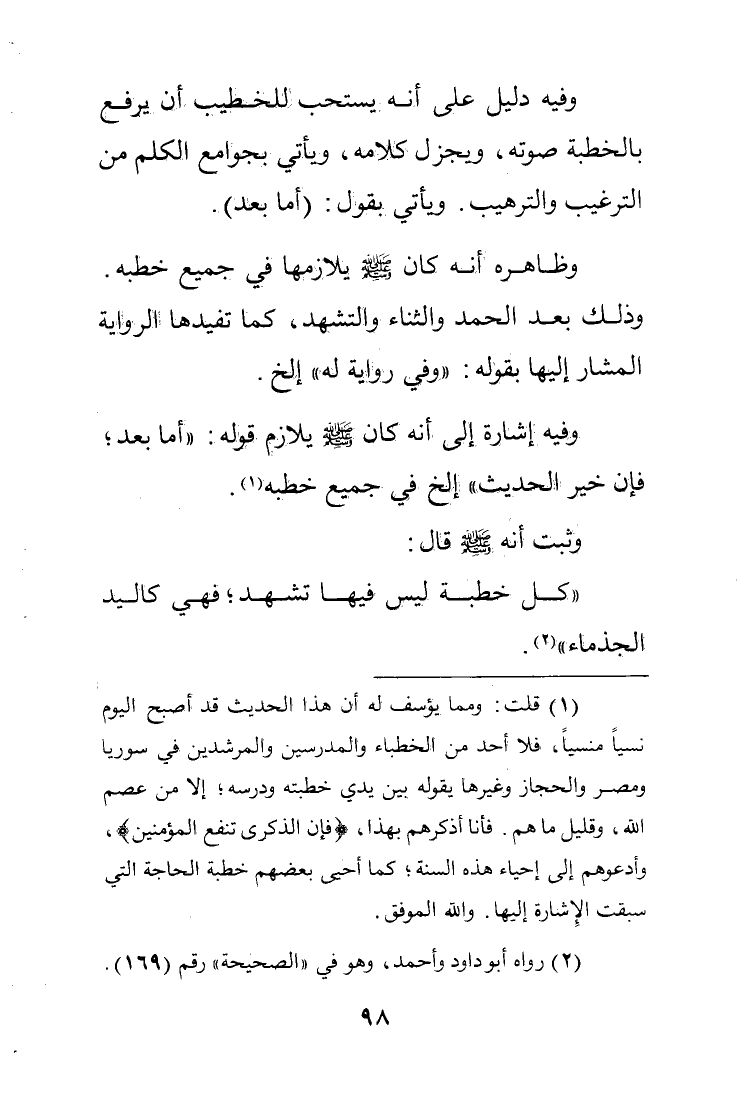 وفيه دليل على أنه يستحب للخطيب أن يرفع
بالخطبة صوته، ويجزل كلامه، ويأتي بجوامع الكلم من
الترغيب والترهيب. ويأتي بقول: (أما بعد).
وظاهره أنه كان ﷺ يلازمها في جميع خطبه.
وذلك بعد الحمد والثناء والتشهد، كما تفيدها الرواية
المشار إليها بقوله: «وفي رواية له» إلخ.
وفيه إشارة إلى أنه كان ﷺ يلازم قوله: «أما بعد؛
فإن خير الحديث» إلخ في جميع خطبه(١).
وثبت أنه ﷺ قال:
«كل خطبة ليس فيها تشهد؛ فهي كاليد
الجذماء»(٢).
(١) قلت: ومما يؤسف له أن هذا الحديث قد أصبح اليوم
نسياً منسياً، فلا أحد من الخطباء والمدرسين والمرشدين في سوريا
ومصر والحجاز وغيرها يقوله بين يدي خطبته ودرسه؛ إلا من عصم
الله، وقليل ما هم. فأنا أذكرهم بهذا، ﴿فإن الذكرى تنفع المؤمنين﴾،
وأدعوهم إلى إحياء هذه السنة؛ كما أحيى بعضهم خطبة الحاجة التي
سبقت الإشارة إليها. والله الموفق.
(٢) رواه أبو داود وأحمد، وهو في «الصحيحة» رقم (١٦٩).
٩٨